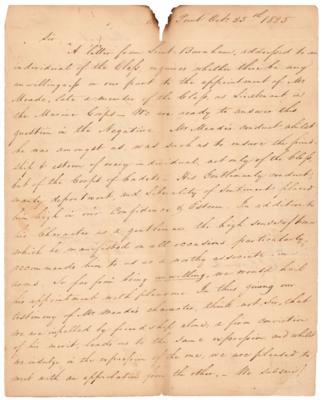 Point Oct. 25th 1825
Sir
A letter from Lieut. Burnham, addressed to an
individual of the Class, enquires whether there be any
unwillingness on our part to the appointment of Mr
Meade, late a member of the Class, as Lieutenant in
the Marine Corps — We are ready to answer this
question in the Negative. Mr Meade's conduct whilst
he was amongst us, was such as to insure the friend-
ship & esteem of every individual, not only of the Class,
but of the Corps of Cadets. His Gentlemanly conduct,
manly deportment, and Liberality of Sentiment placed
him high in our Confidence & Esteem. In addition to
his Character as a gentleman the high sense of honor
which he manifested on all occasions particularly,
recommends him to us as a worthy associate in
arms. So far from being unwilling, we would hail
his appointment with pleasure. In thus giving our
testimony of Mr Meade's character, think not Sir, that
we are impelled by friendship alone, a firm conviction
of his merit, leads us to the same expression and whilst
we indulge in the expression of the one, we are pleased to
meet with an approbation from the other. — We subscribe